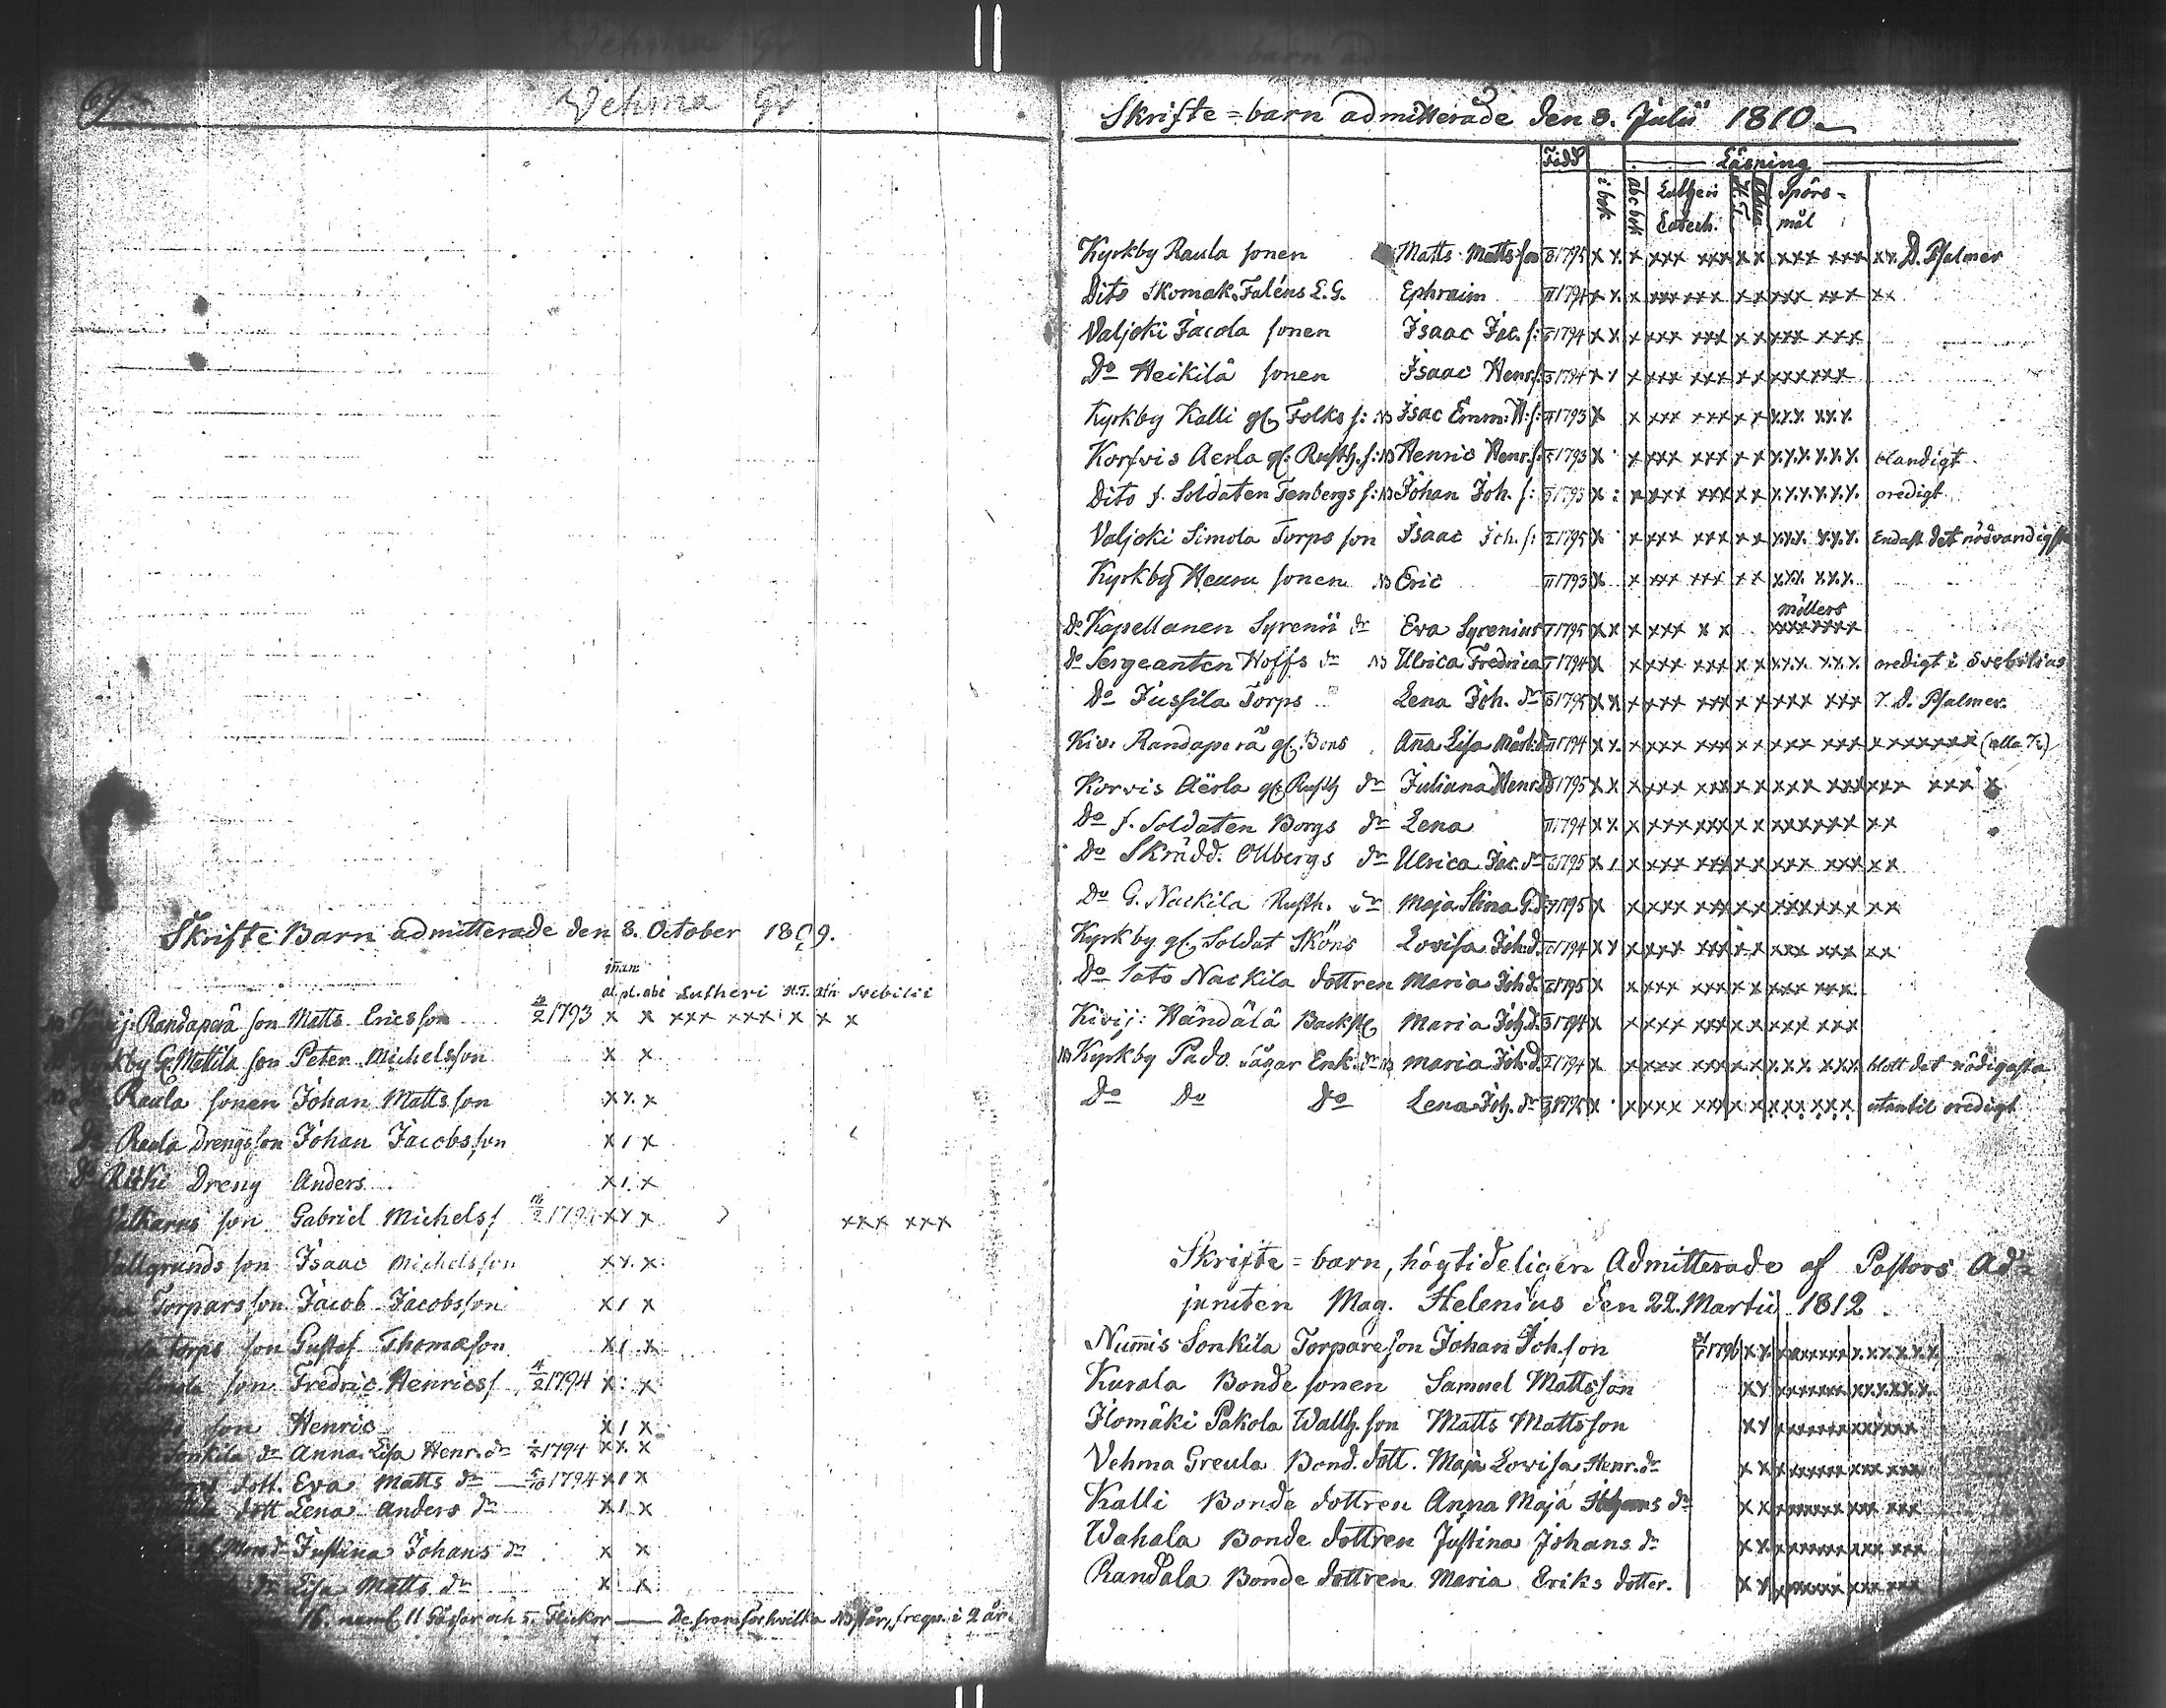 Vehma Gr
Skrifte Barn admitterade den 8. October 1809.
iñan
abc Lutheri H.T. Ath Svebilii
Randaperä son Matts Ericsson 1793 x x xxx xxx x x x
Matila son Peter Michelsson x x
Raula sonen Johan Mattsson x x x
Do Raula Drengsson Johan Jacobsson x 1 x
Do Dreng Anders x 1 x
son Gabriel Michels f 179 x x x xxx xxx
Vallgrunds son Isaac Michelsson x x x
Torpars son Jacob Jacobsson x 1 x
Torps son Gustaf Thomasson x 1 x
son Fredric Henricsf 1794 x : x
son Henric x 1 x
Sonkila dr Anna Lisa Henr. dr 1794 x x x
dott. Eva Matts dr 1794 x 1 x
dott Lena Anders dr x 1 x
Justina Johans dr x x
dr Lisa Matts dr x x
16. neml. 11 Gåssar och 5. Flickor — De framför hvilka NB står, freqv. i 2 år.
Skrifte=barn admitterade den 8. Julii 1810.
Född Läsning
i bok abc bok Lutheri Catech. H.T. Spörs-mål
Kyrkby Raula sonen Matts Matts son 1795 x x x xxx xxx x x xxx xxx D. Psalmer
Dito Skomak. Faléns L.G. Ephraim 1794 x x x xxx xxx x x xxx xxx x x
Valjoki Jacola sonen Isaac Jac. s: 1794 x x x xxx xxx x x xxx xxx
Do Heikilä sonen Isaac Henr. s: 1794 x x x xxx xxx x x xxx xxx
Kyrkby Kalli gl. Folks s: NB Isac Emm: H: s: 1793 x x xxx xxx x x xxx xxx
Korfvis Aerla gl. Rusth. s: NB Henric Henr. s: 1793 x x xxx xxx x x xxx xxx blandigt
Dito f. Soldaten Tenbergs s: NB Johan Joh. s: 1793 x : x xxx xxx x x xxx xxx oredigt
Valjoki Simola Torps son Isaac Joh. s: 1795 x x xxx xxx x x xxx xxx Endast det nödvandigste
Kyrkby Heuru sonen NB Eric 1793 x x xxx xxx x x xxx xxx
möllers
Do Kapellanen Syrenii dr Eva Syrenius 1795 x x x xxx x x xxxxxxx
Do Sergeanten Hoffs dr NB Ulrica Fredrica 1794 x x xxx xxx x x xxx xxx oredigt i Svebilius
Do Jussila Torps Lena Joh. dr 1795 x x x xxx xxx x x xxx xxx 7. D. Psalmer.
Kiv. Randaperä gl. Bons Aña Lisa 1794 x x x xxx xxx x x xxx xxx xxxxxxx (alla 7)
Korvis Aërla gl. Rusth dr Juliana Henr. 1795 x x x xxx xxx x x xxx xxx xxx xxx x
Do f. Soldaten Borgs dr Lena 1794 x x x xxx xxx x x xxx xxx x x
Do Skrädd. Ollbergs dr Ulrica Jac. dr 1795 x 1 x xxx xxx x x xxx xxx x x
Do G. Nackila Rusth. dr Maja Stina G. d: 1795 x x xxx xxx x x xxx xxx x x
Kyrkby gl. Soldat Sköns Lovisa Joh. d. 1794 x x x xxx xxx x x xxx xxx x x
Do Sato Nackila dottren Maria Joh d. 1795 x x xxx xxx x x xxx xxx
Kivij: Händälä Backst Maria Joh. d. 1794 x x xxx xxx x x xxx xxx
NB Kyrkby Pado Enk. dr NB Maria Joh. d. 1794 x x xxx xxx x x xxx xxx blott det nödigasta
Do Do Do Lena Joh. dr 1795 x x xxx xxx x x xxx xxx utantil oredigt
Skrifte=barn, högtideligen Admitterade af Pastors Ad=
juncten Mag. Helenius den 22. Martii 1812
Numis Sonkila Torpare son Johan Joh. son 1796 x x xxxxxxx xxxxxx
Kurala Bonde sonen Samuel Mattsson x x xxxxxxx xxxxxx
Ilomäki Pakola Wallh. son Matts Mattsson x x xxxxxxx xxxxxx
Vehma Greula Bond. dott. Maja Lovisa Henr. dr x x xxxxxxx xxx xxx
Kalli Bonde dottren Anna Maja dr x x xxxxxxx xxx xxx
Wahala Bonde dottren Justina Johans dr x x xxxxxxx xxx xxx
Randala Bonde dottren Maria Eriks dotter. x x xxxxxxx xxx xxx